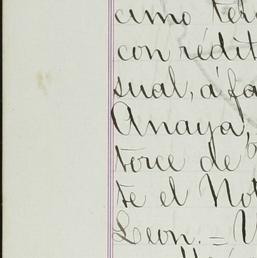 cimo ter
con rédit
sual, á fa
Anaya,
torce de
te el Not
Leon. = V